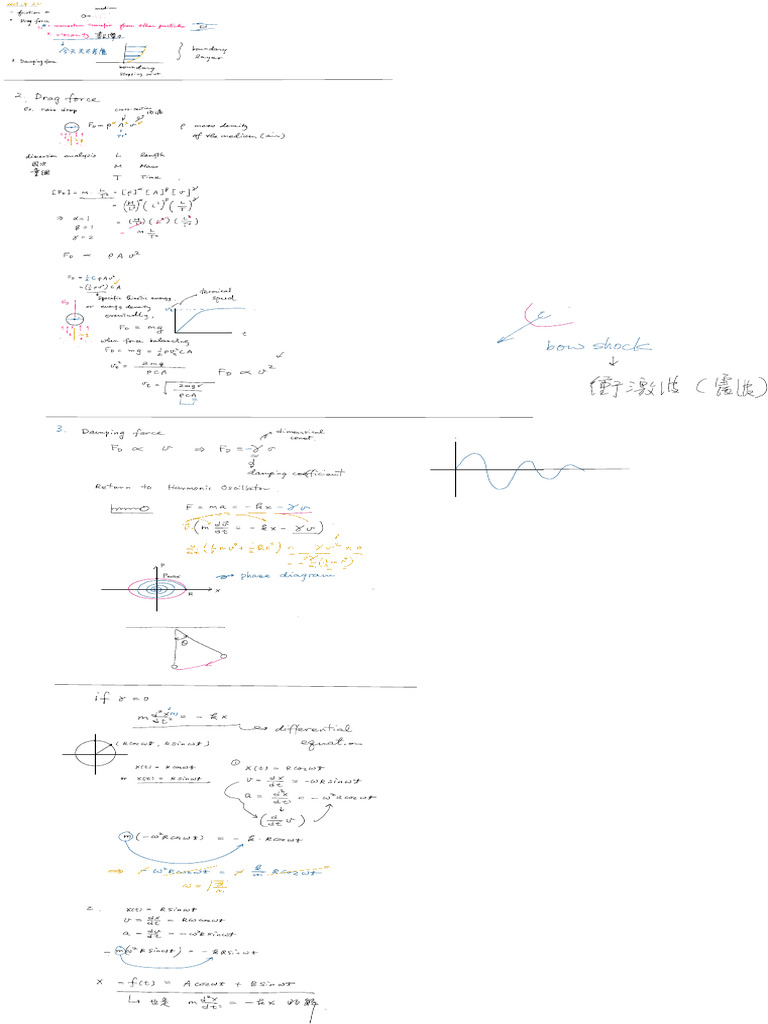 friction
medium
Drag force
momentum transfer from other particles
viscosity
今天先不考慮
boundary layer
Damping force
boundary
2. Drag force
Ex. rain drop
cross-section
F_D = ρ^α A^β v^γ
ρ mass density
of the medium (air)
dimension analysis L Length
因次 M Mass
T Time
[F_D] = M · L/T² = [ρ]^α [A]^β [v]^γ
= (M/L³)^α (L²)^β (L/T)^γ
⇒ α = 1
β = 1
γ = 2
= (M/L³)(L²)(L²/T²)
= M L/T²
F_D ∝ ρAv²
F_D = ½CρAv²
= (½ρv²)CA
specific kinetic energy
or energy density
terminal speed
eventually,
F_D = mg
t
when force balancing
F_D = mg = ½ρv_t²CA
v_t² = 2mg/ρCA
F_D ∝ v²
v_t = √(2mg/ρCA)
bow shock
↓
衝激波 (震波)
3. Damping force
dimensional const.
F_D ∝ v ⇒ F_D = -γv
damping coefficient
Return to Harmonic Oscillator
F = ma = -kx - γv
v(m dv/dt = -kx - γv)
d/dt(½mv² + ½kx²) = -γv²
P
P_max
phase diagram
R
x
θ
if γ = 0
m d²x(t)/dt² = -kx
differential equation
(Rcosωt, Rsinωt)
x(t) = Rcosωt
or x(t) = Rsinωt
① x(t) = Rcosωt
v = dx/dt = -ωRsinωt
a = d²x/dt² = -ω²Rcosωt
(d/dt v)
m(-ω²Rcosωt) = -k·Rcosωt
⇒ -ω²Rcosωt = -k/m Rcosωt
ω = √(k/m)
2. x(t) = Rsinωt
v = dx/dt = Rωcosωt
a = dv/dt = -ω²Rsinωt
-m(ω²Rsinωt) = -kRsinωt
x -f(t) = Acosωt + Bsinωt
↳ 也是 m d²x/dt² = -kx 的解